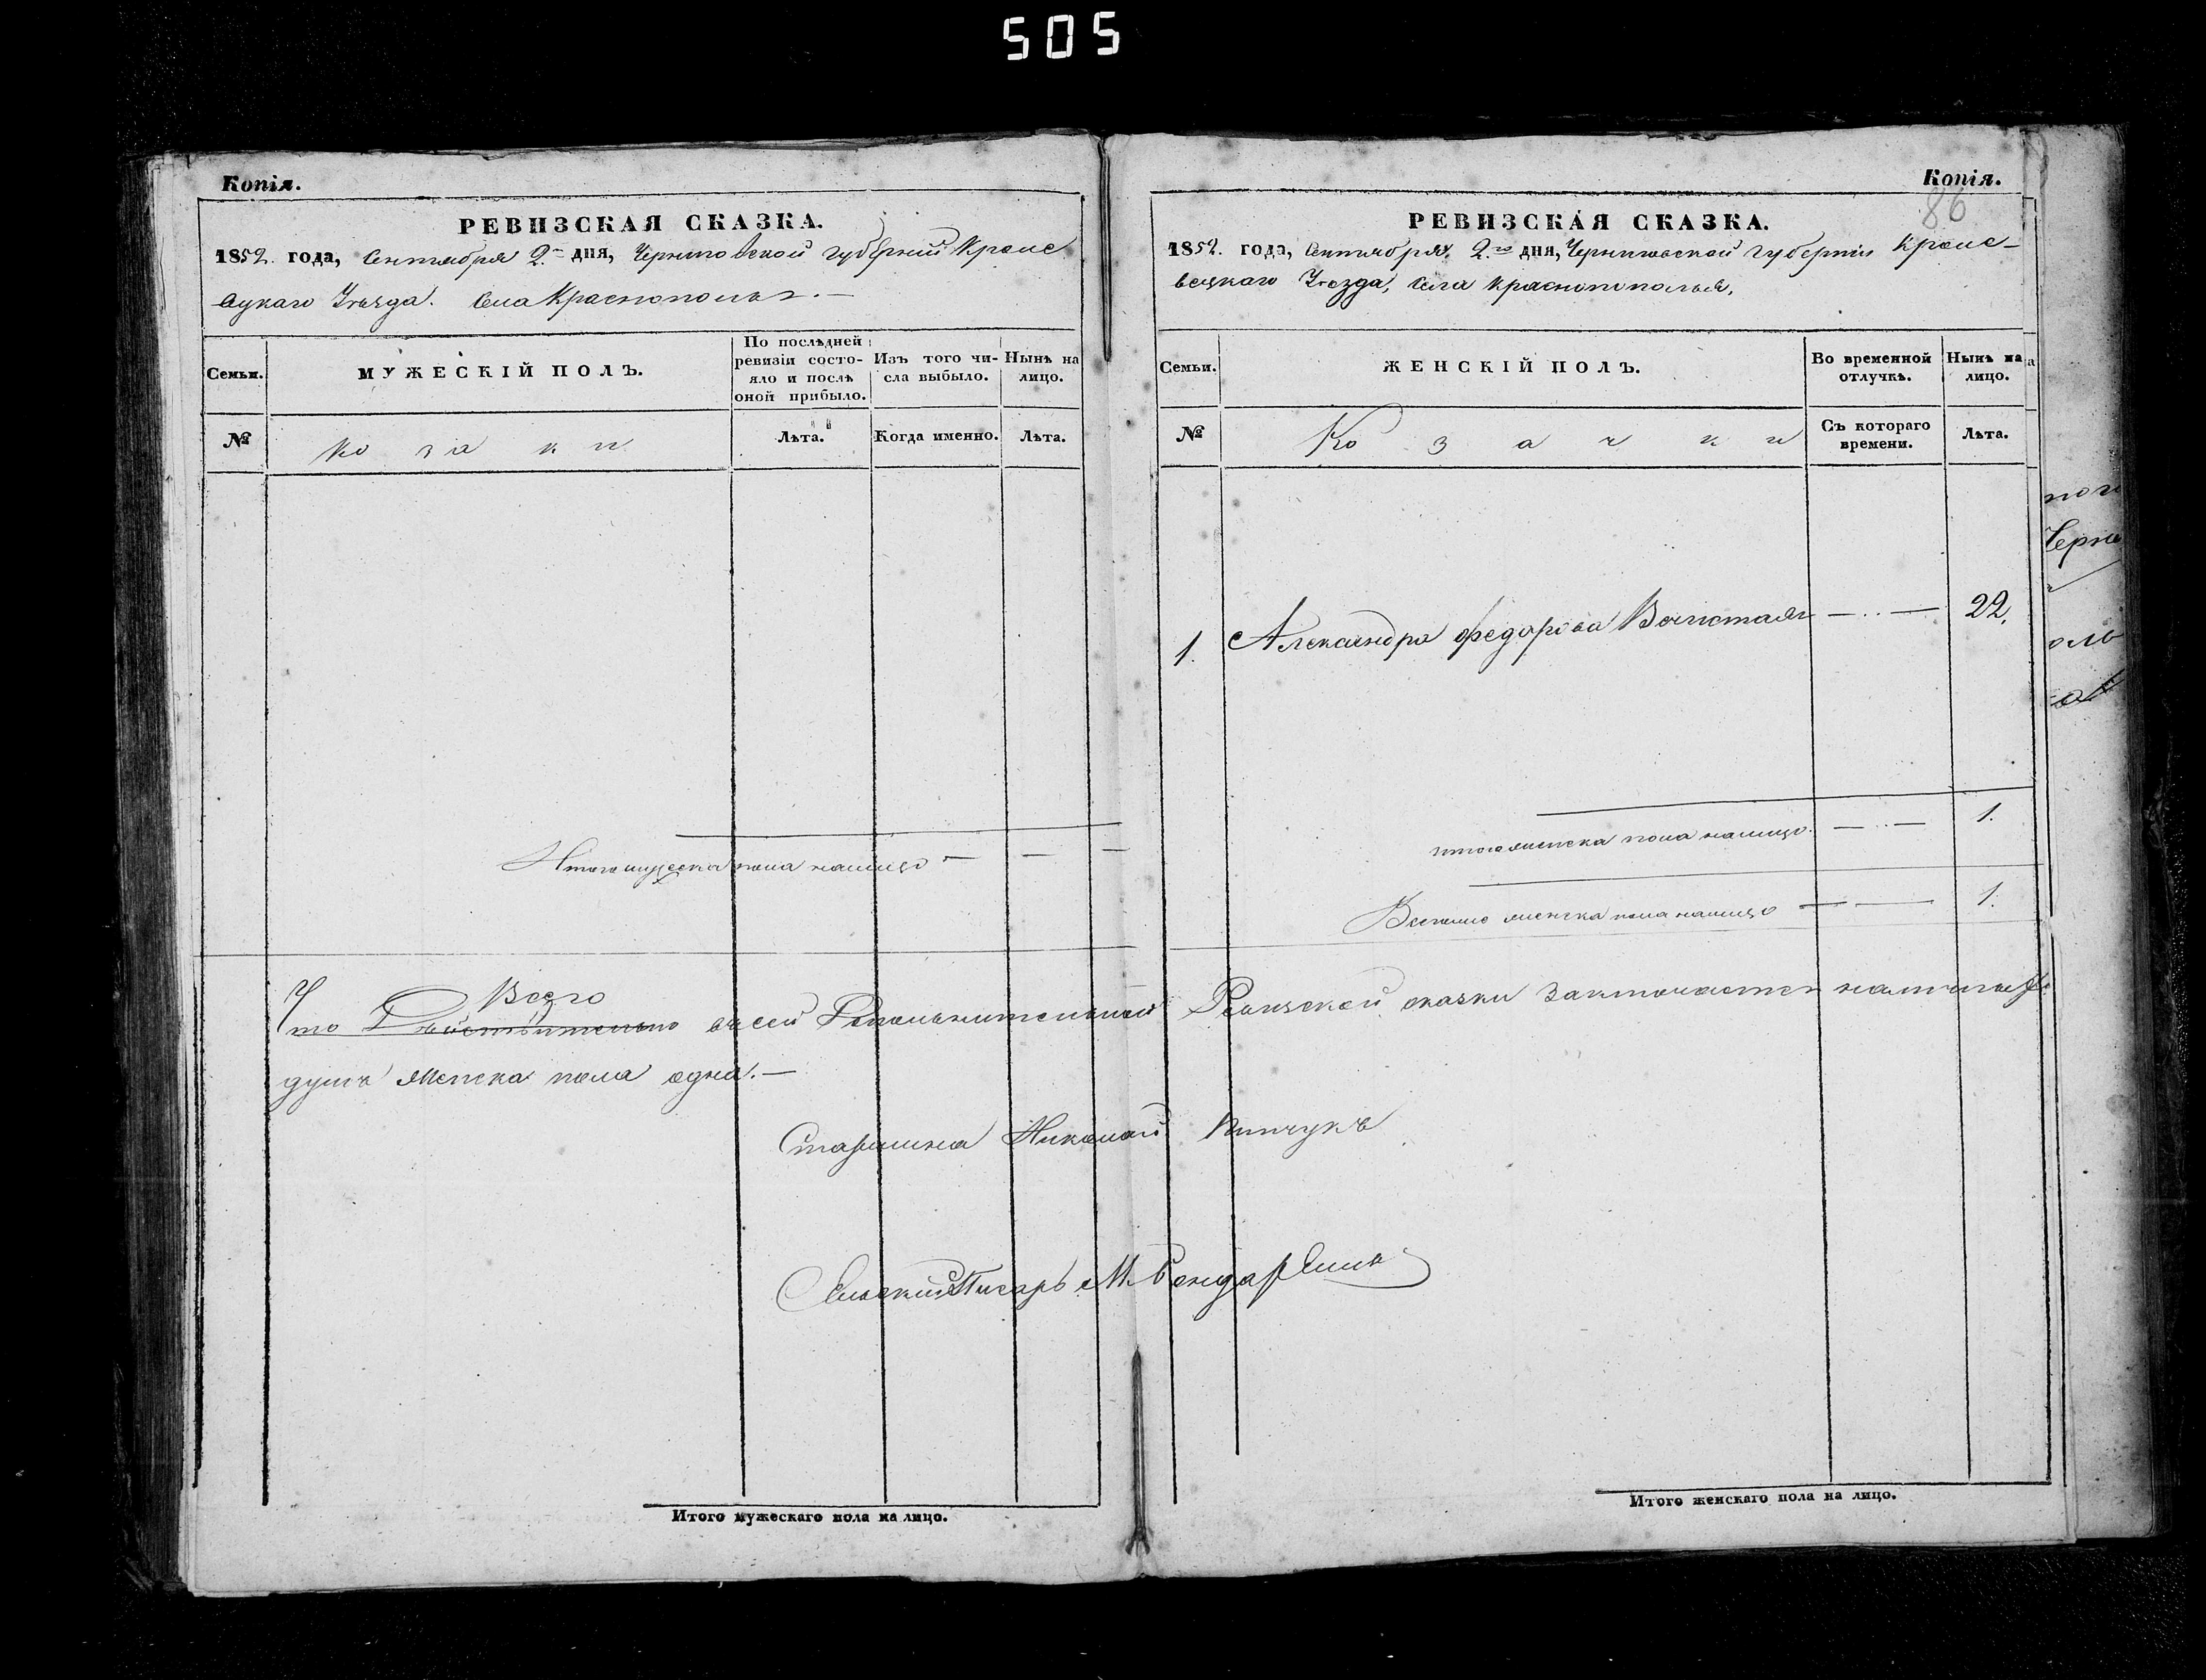 505
Копія.
РЕВИЗСКАЯ СКАЗКА.
1852. года, Сентября 2.го дня, Черниговской губерніи Кроле
вецкаго Уѣзда. Села Краснополья.—
Семьи.
МУЖЕСКІЙ ПОЛЪ.
По послѣдней ревизіи состояло и послѣ оной прибыло.
Изъ того числа выбыло.
Нынѣ на лицо.
№
Козаки
Лѣта.
Когда именно.
Лѣта.
Итого мужеска пола налицо — — —
Копія.
86
РЕВИЗСКАЯ СКАЗКА.
1852. года, Сентября, 2.го дня, Черниговской губерніи Кроле-
вецкаго Уѣзда, Села Краснополья.
Семьи.
ЖЕНСКІЙ ПОЛЪ.
Во временной отлучкѣ.
Нынѣ на лицо.
№
Козачки
Съ котораго времени.
Лѣта.
1. Александра Федорова — 22.
итого женска пола налицо. — 1.
Всего женска пола налицо — 1.
Всего
Что Дѣйствительно въ сей Дополнительной Ревизской сказки заключается
душъ женска пола одна.—
Старшина Николай
Сельскій Писарь М. Бондар
Итого мужескаго пола на лицо.
Итого женскаго пола на лицо.